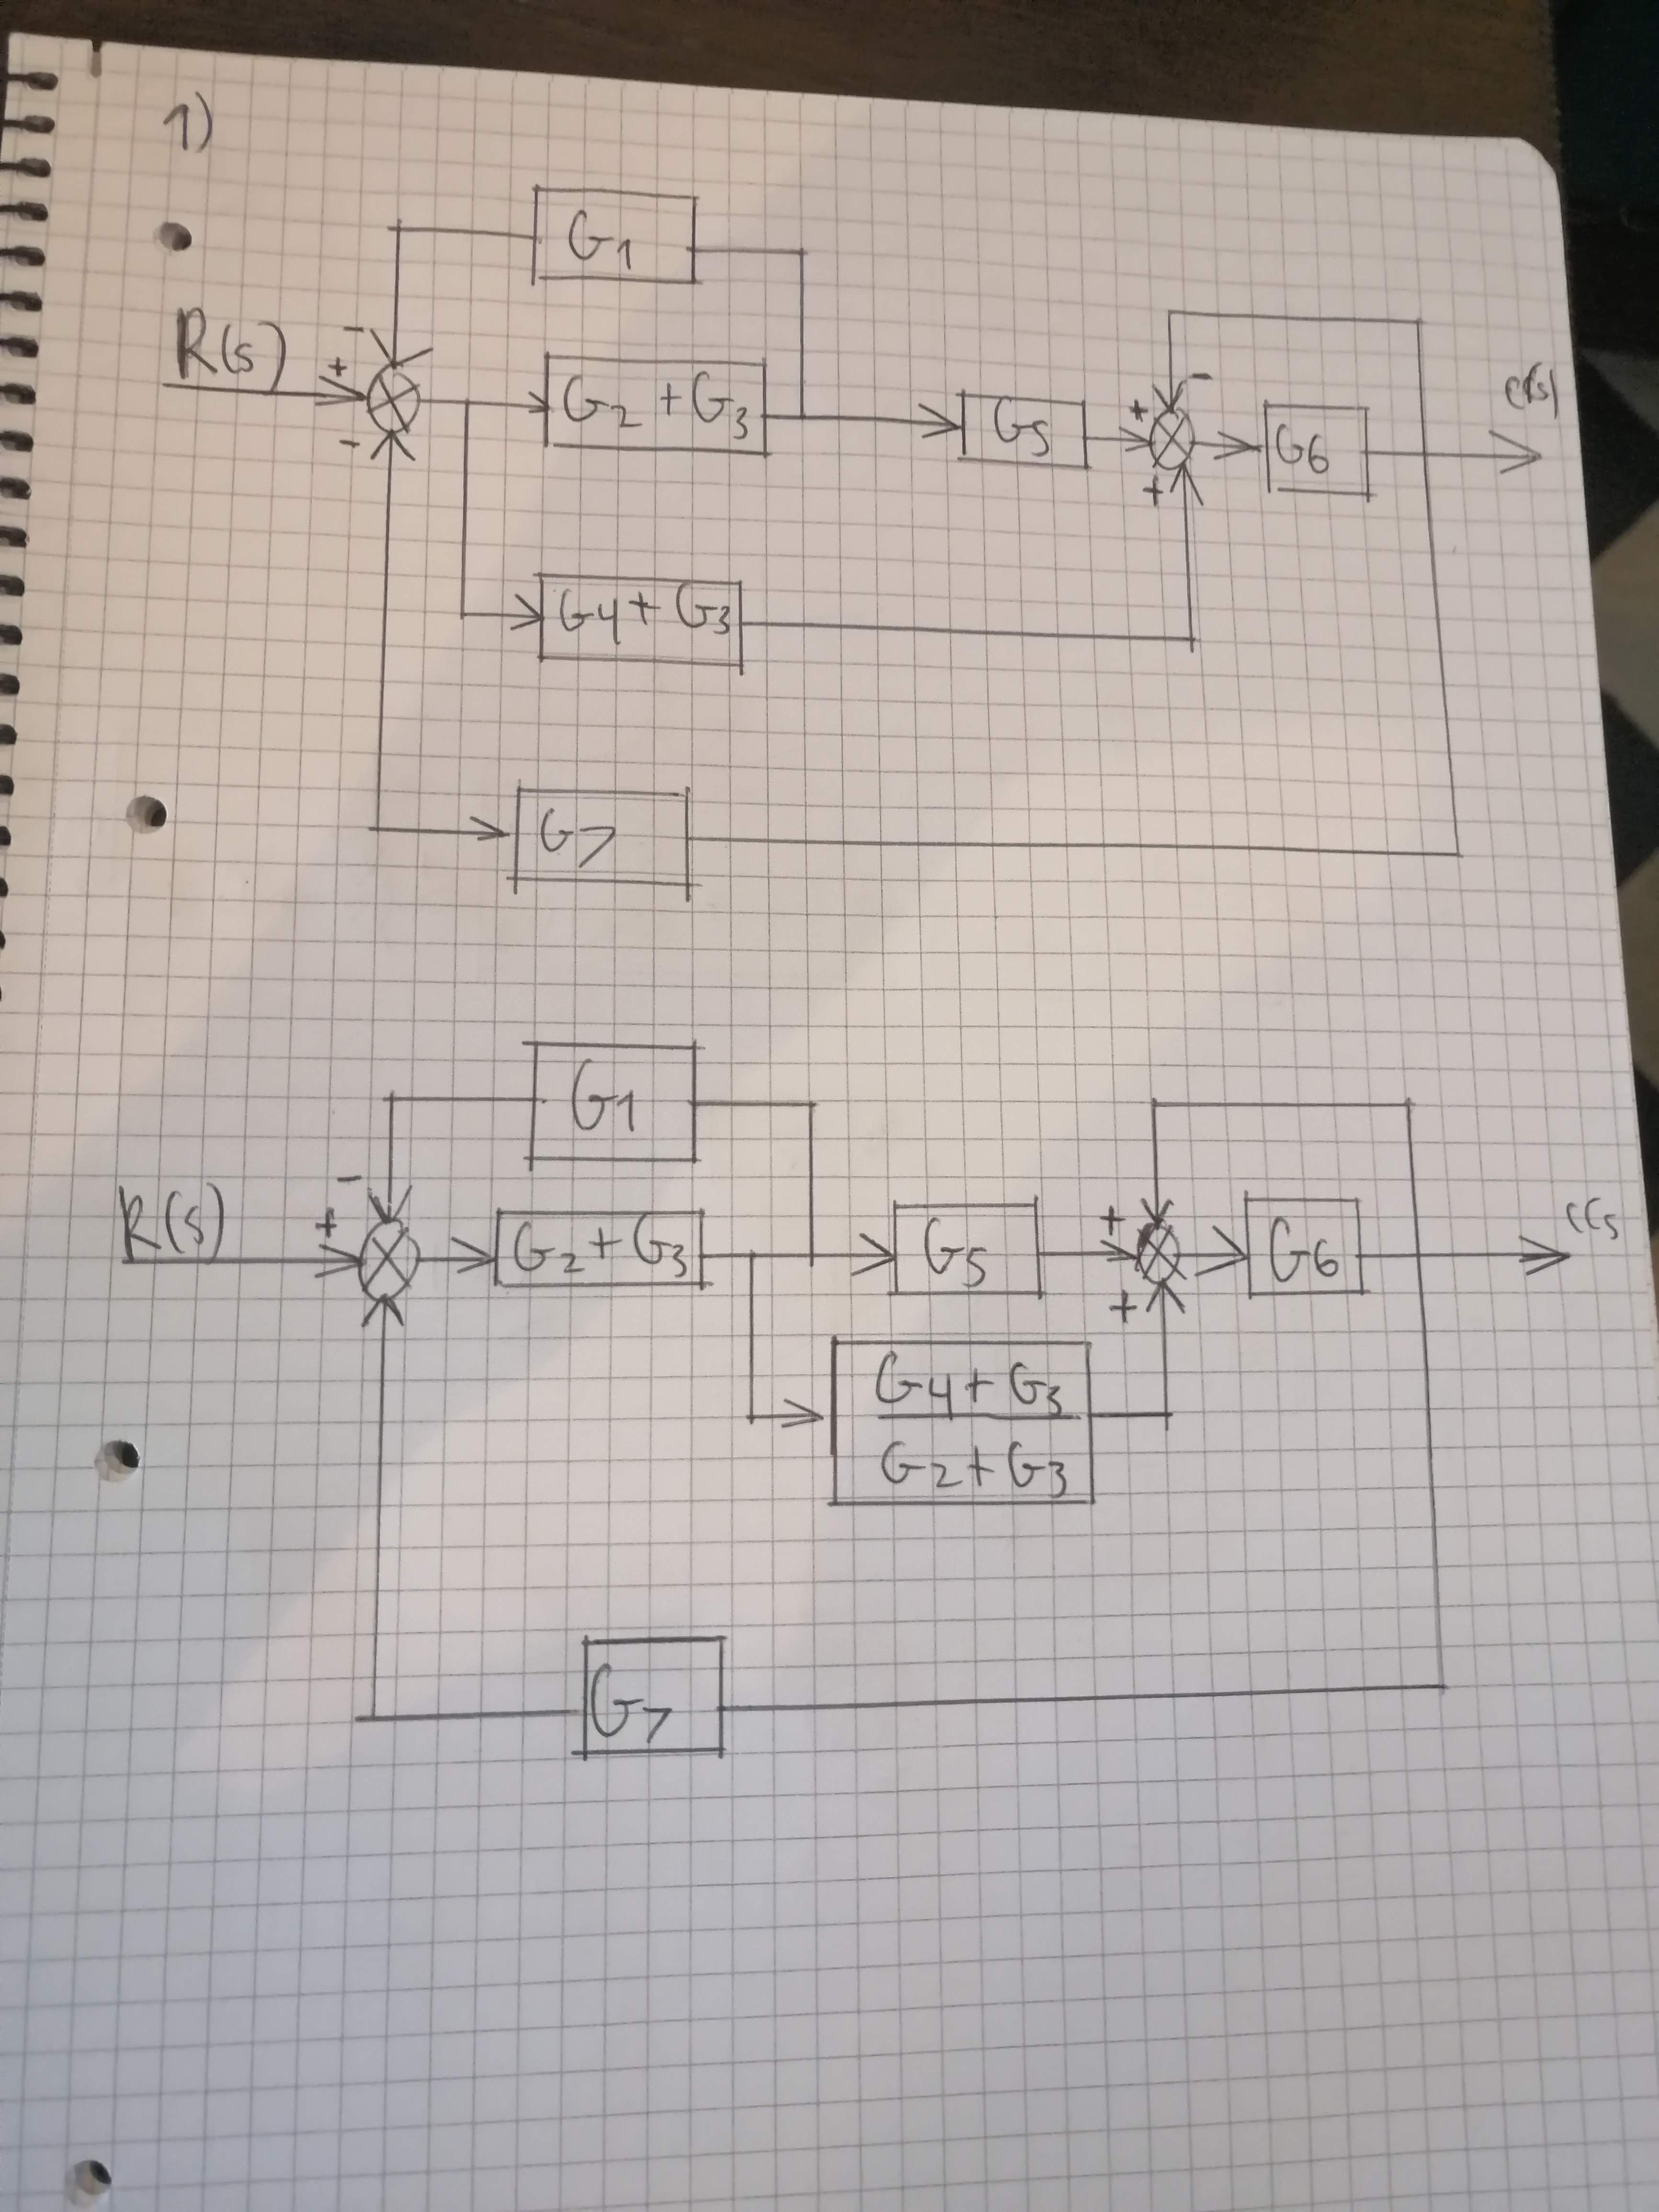 1)
G1
R(s)
-
+
G2 + G3
-
G5
+
-
+
G6
C(s)
G4 + G3
G7
G1
-
R(s)
+
G2 + G3
G5
+
+
G6
C(s
G4 + G3
G2 + G3
G7